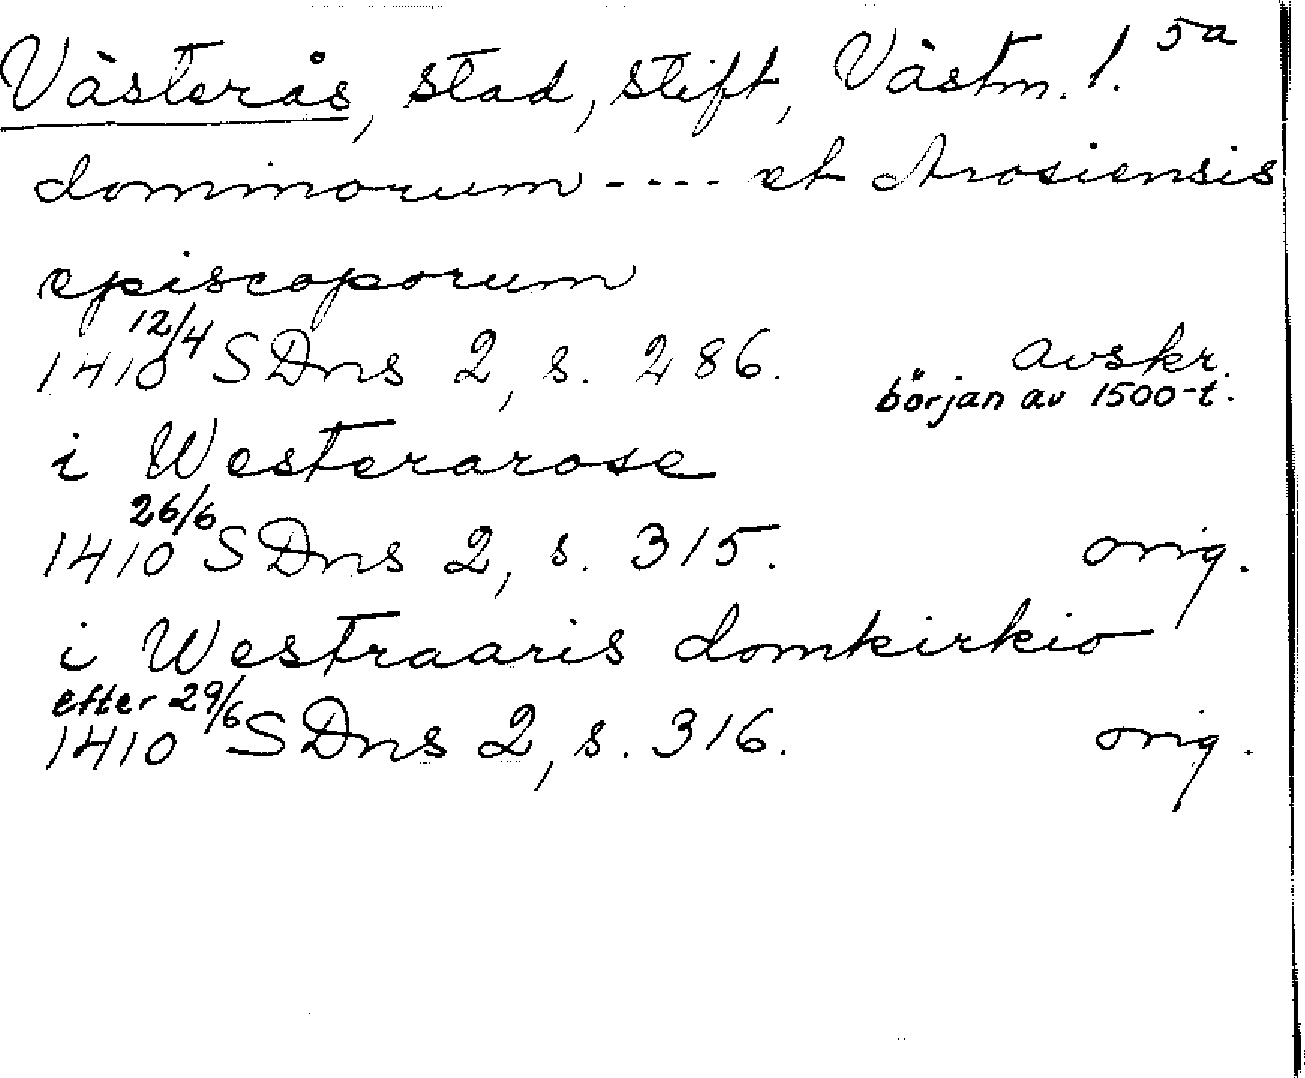 Västerås, stad, stift, Västm. l. 5a
dominorum ---- et Arosiensis
episcoporum
12/4
1410 SDns 2, s. 286. avskr.
början av 1500-t.
i Westerarose
26/6
1410 SDns 2, s. 315. orig.
i Westraaris domkirkio
efter 29/6
1410 SDns 2, s. 316. orig.